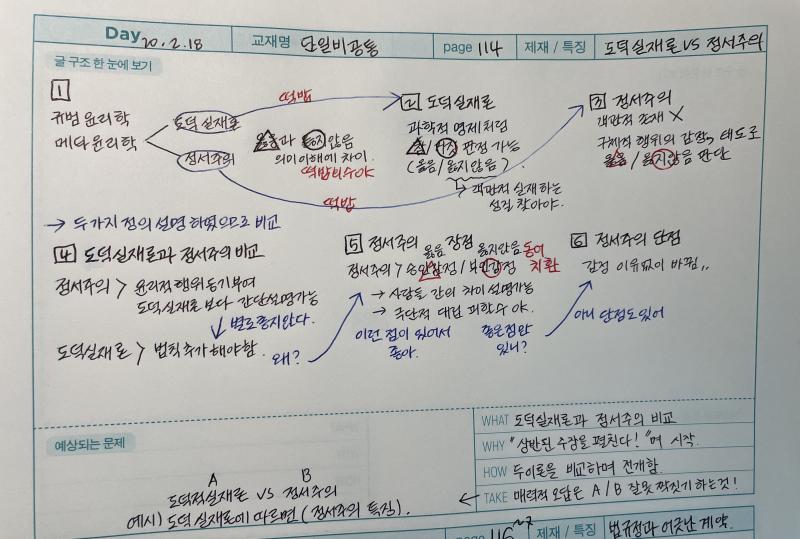 Day 20.2.18 교재명 단일비공통 page 114 제재 / 특징 도덕실재론 VS 정서주의
글 구조 한 눈에 보기
1
규범 윤리학
메타윤리학
도덕 실재론
정서주의
옳음과 옳지않음
의미이해에 차이.
떡밥회수야
떡밥
떡밥
→ 두가지 정의 설명 하였으므로 비교
2 도덕실재론
과학적 명제처럼
참/거짓 판정 가능
(옳음/옳지않음).
→ 객관적 실재하는
성질 찾아야.
3 정서주의
객관적 존재 X
구체적 행위의 감정, 태도로
옳음/옳지않음 판단
4 도덕실재론과 정서주의 비교
정서주의 > 윤리적 행위 동기부여
도덕실재론 보다 간단설명가능
↓ 별로좋지않다.
도덕실재론 > 법칙 추가해야함.
왜?
5 정서주의 장점
옳음 옳지않음 동어
정서주의 > 승인감정/부인감정 치환
→ 사람들 간의 차이 설명가능
→ 극단적 대립 피할수 야.
이런 점이 있어서
좋아.
좋은점만
있니?
6 정서주의 단점
감정 이유없이 바뀜,,
아니 단점도있어
예상되는 문제
A B
도덕적실재론 VS 정서주의
예시) 도덕 실재론에 따르면 (정서주의 특징).
WHAT 도덕실재론과 정서주의 비교
WHY "상반된 주장을 펼친다!"며 시작.
HOW 두이론을 비교하며 전개함.
TAKE 매력적 오답은 A/B 잘못 짝짓기 하는것!
page 116~7 제재 / 특징 법규정과 어긋난 계약.